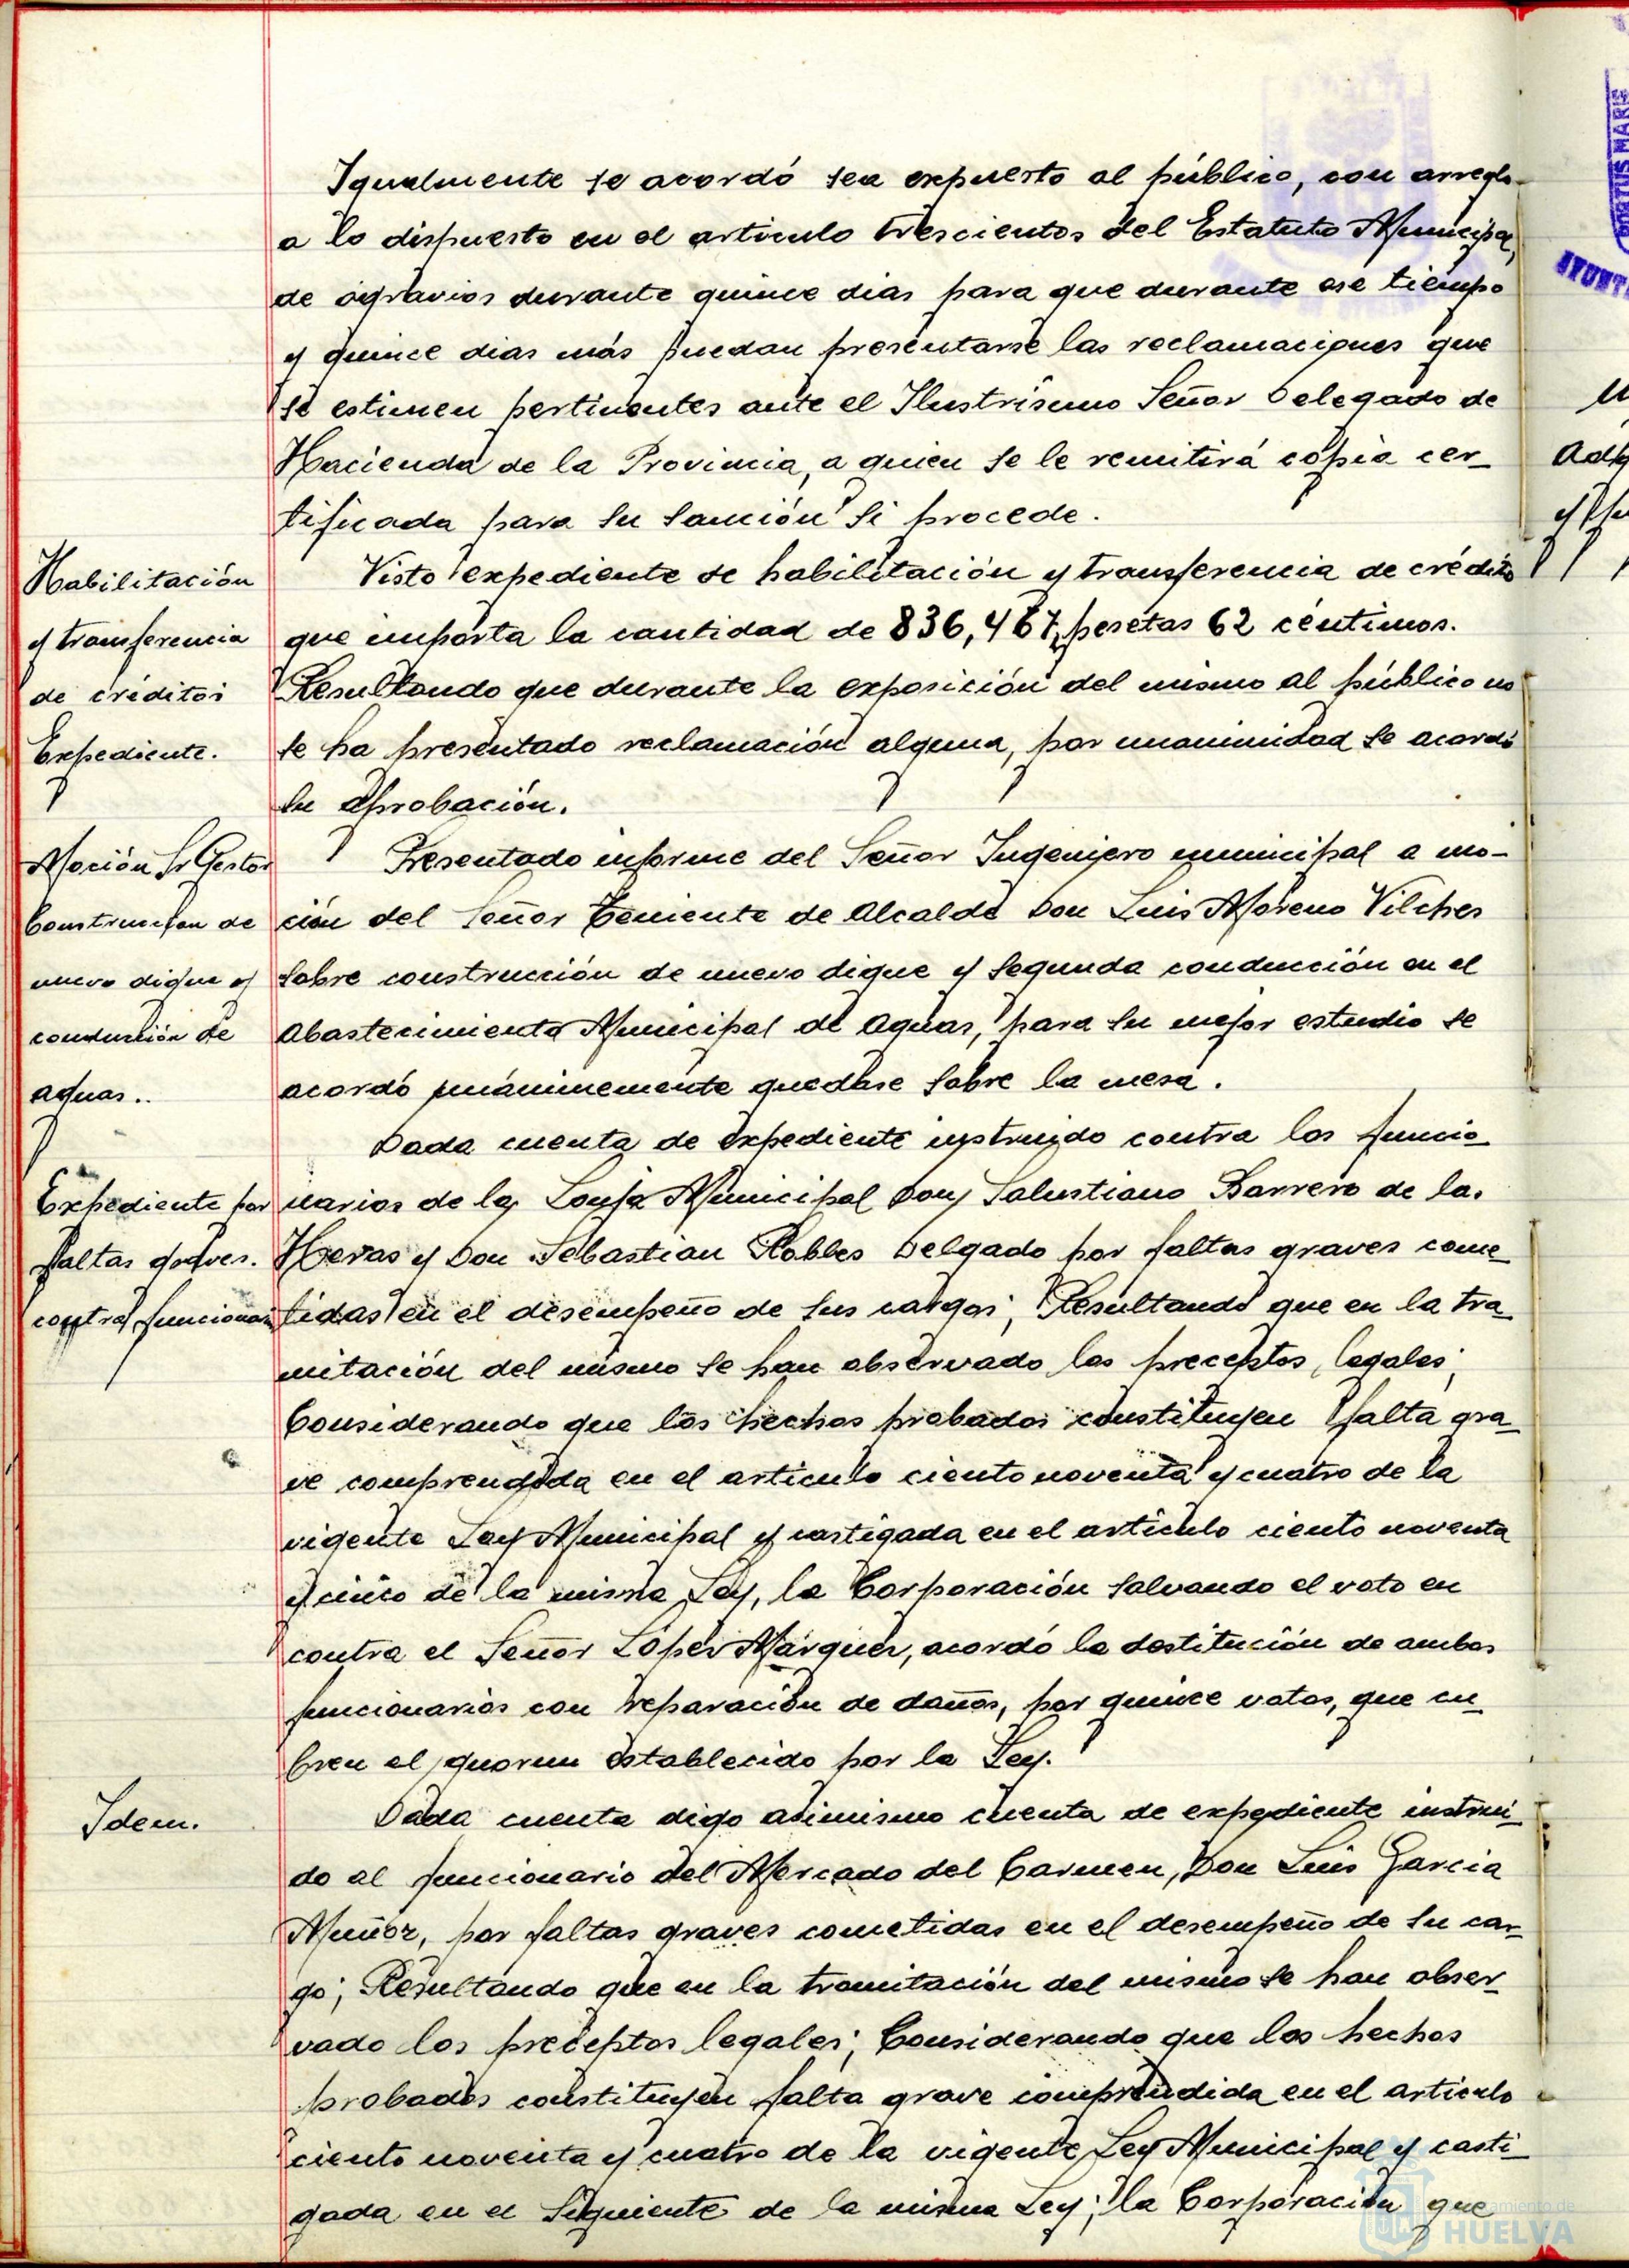 Igualmente se acordó sea expuesto al público, con arreglo
a lo dispuesto en el articulo trescientos del Estatuto Municipal,
de agravios durante quince dias para que durante ese tiempo
y quince dias más puedan presentarse las reclamaciones que
se estimen pertinentes ante el Ilustrísimo Señor Delegado de
Hacienda de la Provincia, a quien se le remitirá copia cer_
tificada para su sanción si procede.
Habilitación
y transferencia
de créditos
Expediente.
Visto expediente de habilitación y transferencia de crédito
que importa la cantidad de 836,467, pesetas 62 céntimos.
Resultando que durante la exposición del mismo al público no
se ha presentado reclamación alguna, por unanimidad se acordó
su aprobación.
Moción Sr Gestor
Construccion de
nuevo dique y
conducción de
aguas..
Presentado informe del Señor Ingeniero municipal a mo-
ción del Señor Teniente de Alcalde Don Luis Moreno Vilches
sobre construcción de nuevo dique y segunda conducción en el
Abastecimiento Municipal de aguas, para su mejor estudio se
acordó unánimemente quedase sobre la mesa.
Expediente por
faltas graves.
contra funcionari
Dada cuenta de expediente instruido contra los funcio_
narios de la Lonja Municipal Don Salustiano Barrero de la.
Heras y Don Sebastian Robles Delgado por faltas graves come_
tidas en el desempeño de sus cargos; Resultando que en la tra_
mitación del mismo se han observado los preceptos legales;
Considerando que los hechos probados constituyen falta gra_
ve comprendida en el articulo ciento noventa y cuatro de la
vigente Ley Municipal y castigada en el articulo ciento noventa
y cinco de la misma Ley, la Corporación salvando el voto en
contra el Señor López Márquez, acordó la destitución de ambos
funcionarios con reparación de daños, por quince votos, que cu_
bren el quorum establecido por la Ley.
Idem.
Dada cuenta digo asimismo cuenta de expediente instrui_
do al funcionario del Mercado del Carmen, Don Luis Garcia
Muñoz, por faltas graves cometidas en el desempeño de su car_
go; Resultando que en la tramitación del mismo se han obser_
vado los preceptos legales; Considerando que los hechos
probados constituyen falta grave comprendida en el articulo
ciento noventa y cuatro de la vigente Ley Municipal y casti_
gada en el siguiente de la misma Ley; la Corporación que
PORTUS MARIS
HUELVA